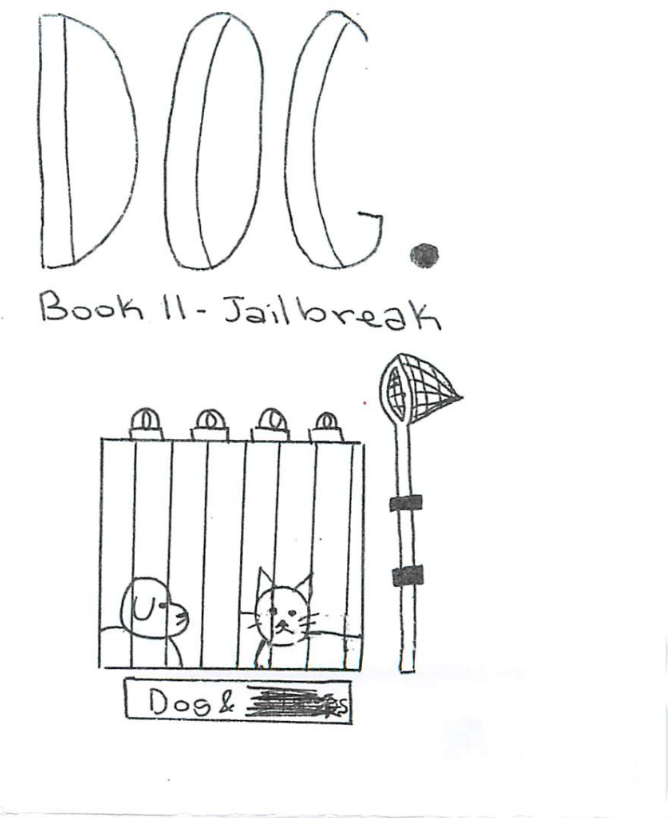 DOG.
Book II - Jailbreak
Dog &